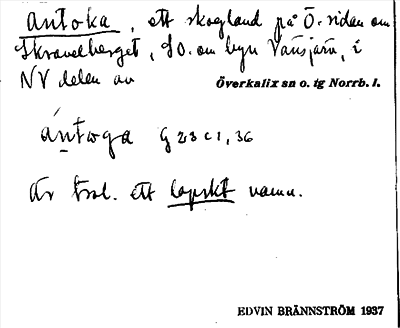 Antoka, ett skogland på Ö. sidan om
Skravelberget, SO. om byn Vänsjärn, i
NV delen av Överkalix sn o. tg Norrb. l.
ántωga G 23 c 1, 36
Är trol. ett lapskt namn.
EDVIN BRÄNNSTRÖM 1937